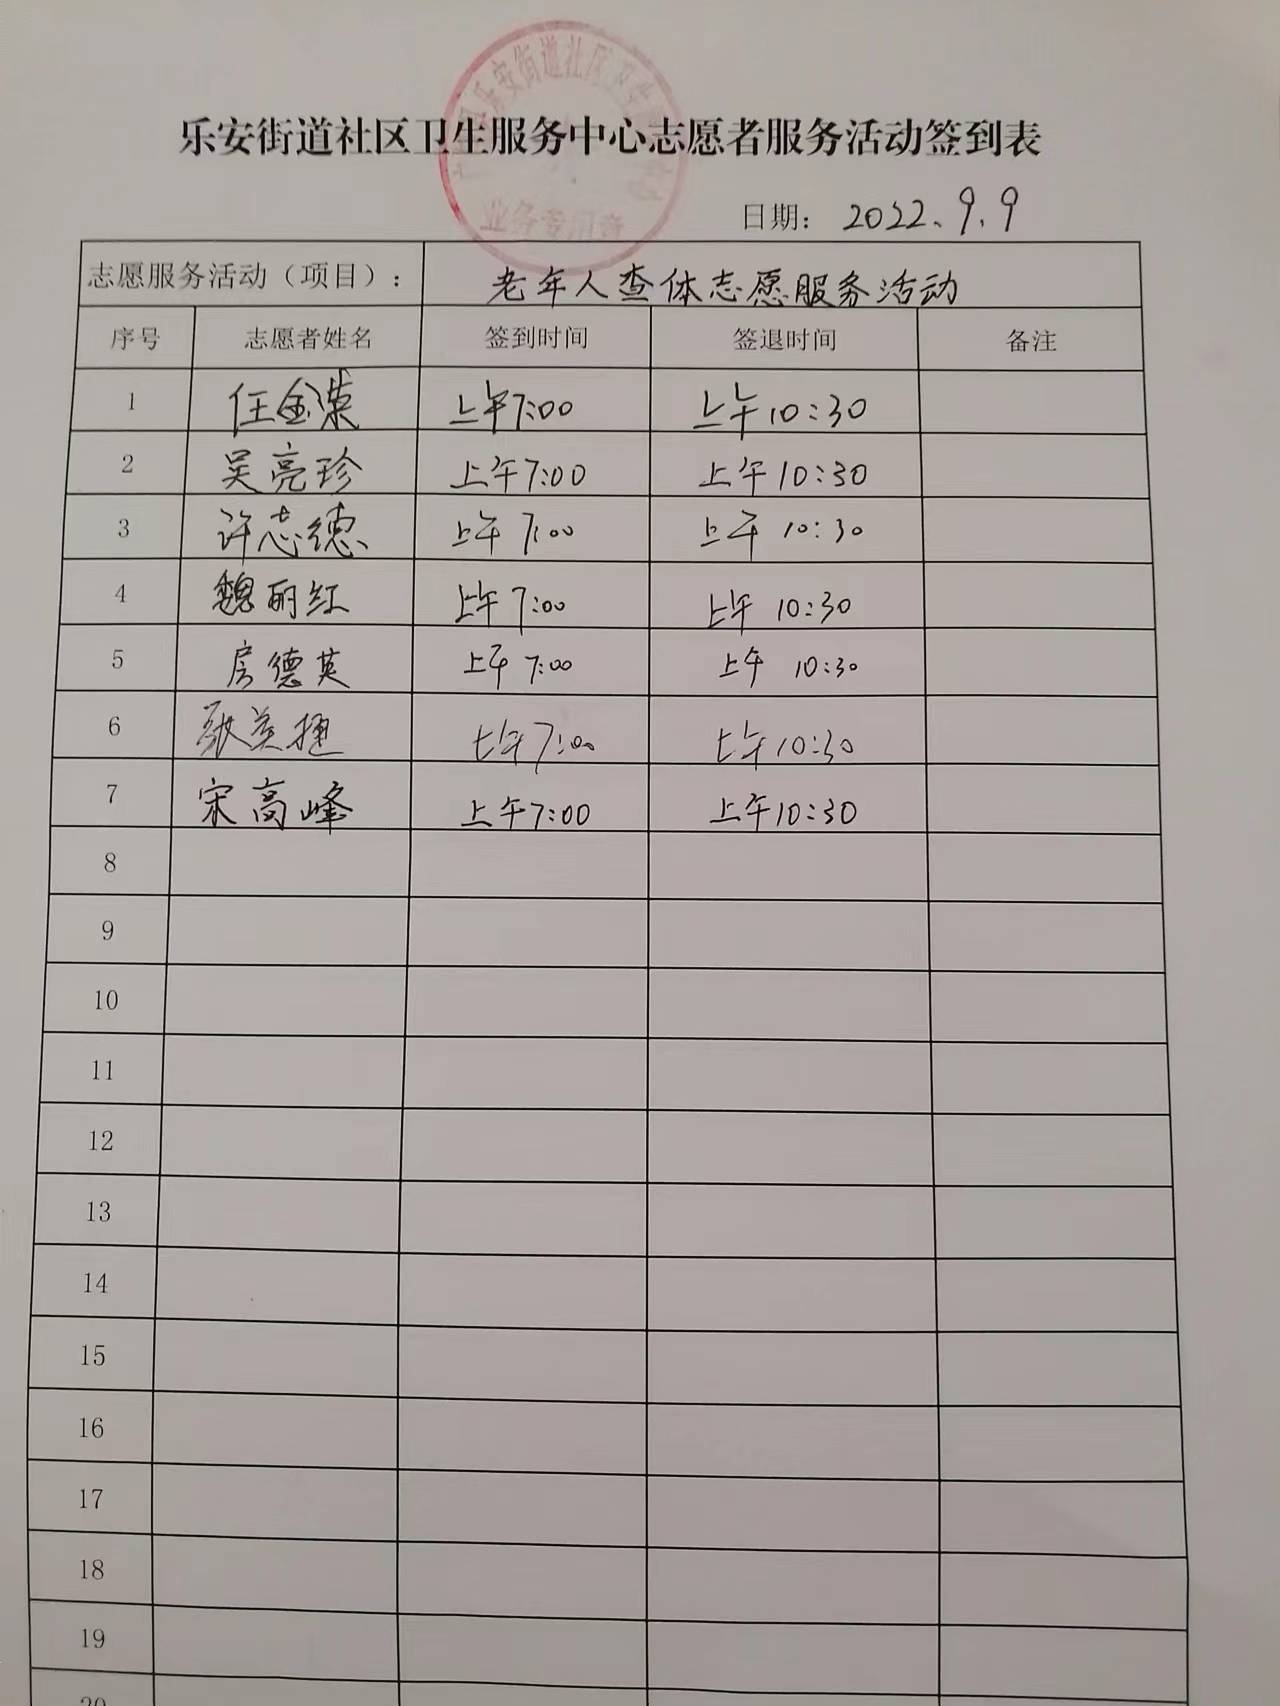 乐安街道社区卫生服务中心志愿者服务活动签到表
业务专用章
日期： 2022.9.9
志愿服务活动（项目）： 老年人查体志愿服务活动
序号 志愿者姓名 签到时间 签退时间 备注
1 任金荣 上午7:00 上午10:30
2 吴亮珍 上午7:00 上午10:30
3 许志德 上午7:00 上午10:30
4 魏丽红 上午7:00 上午10:30
5 房德英 上午7:00 上午10:30
6 张英 上午7:00 上午10:30
7 宋高峰 上午7:00 上午10:30
8
9
10
11
12
13
14
15
16
17
18
19
20